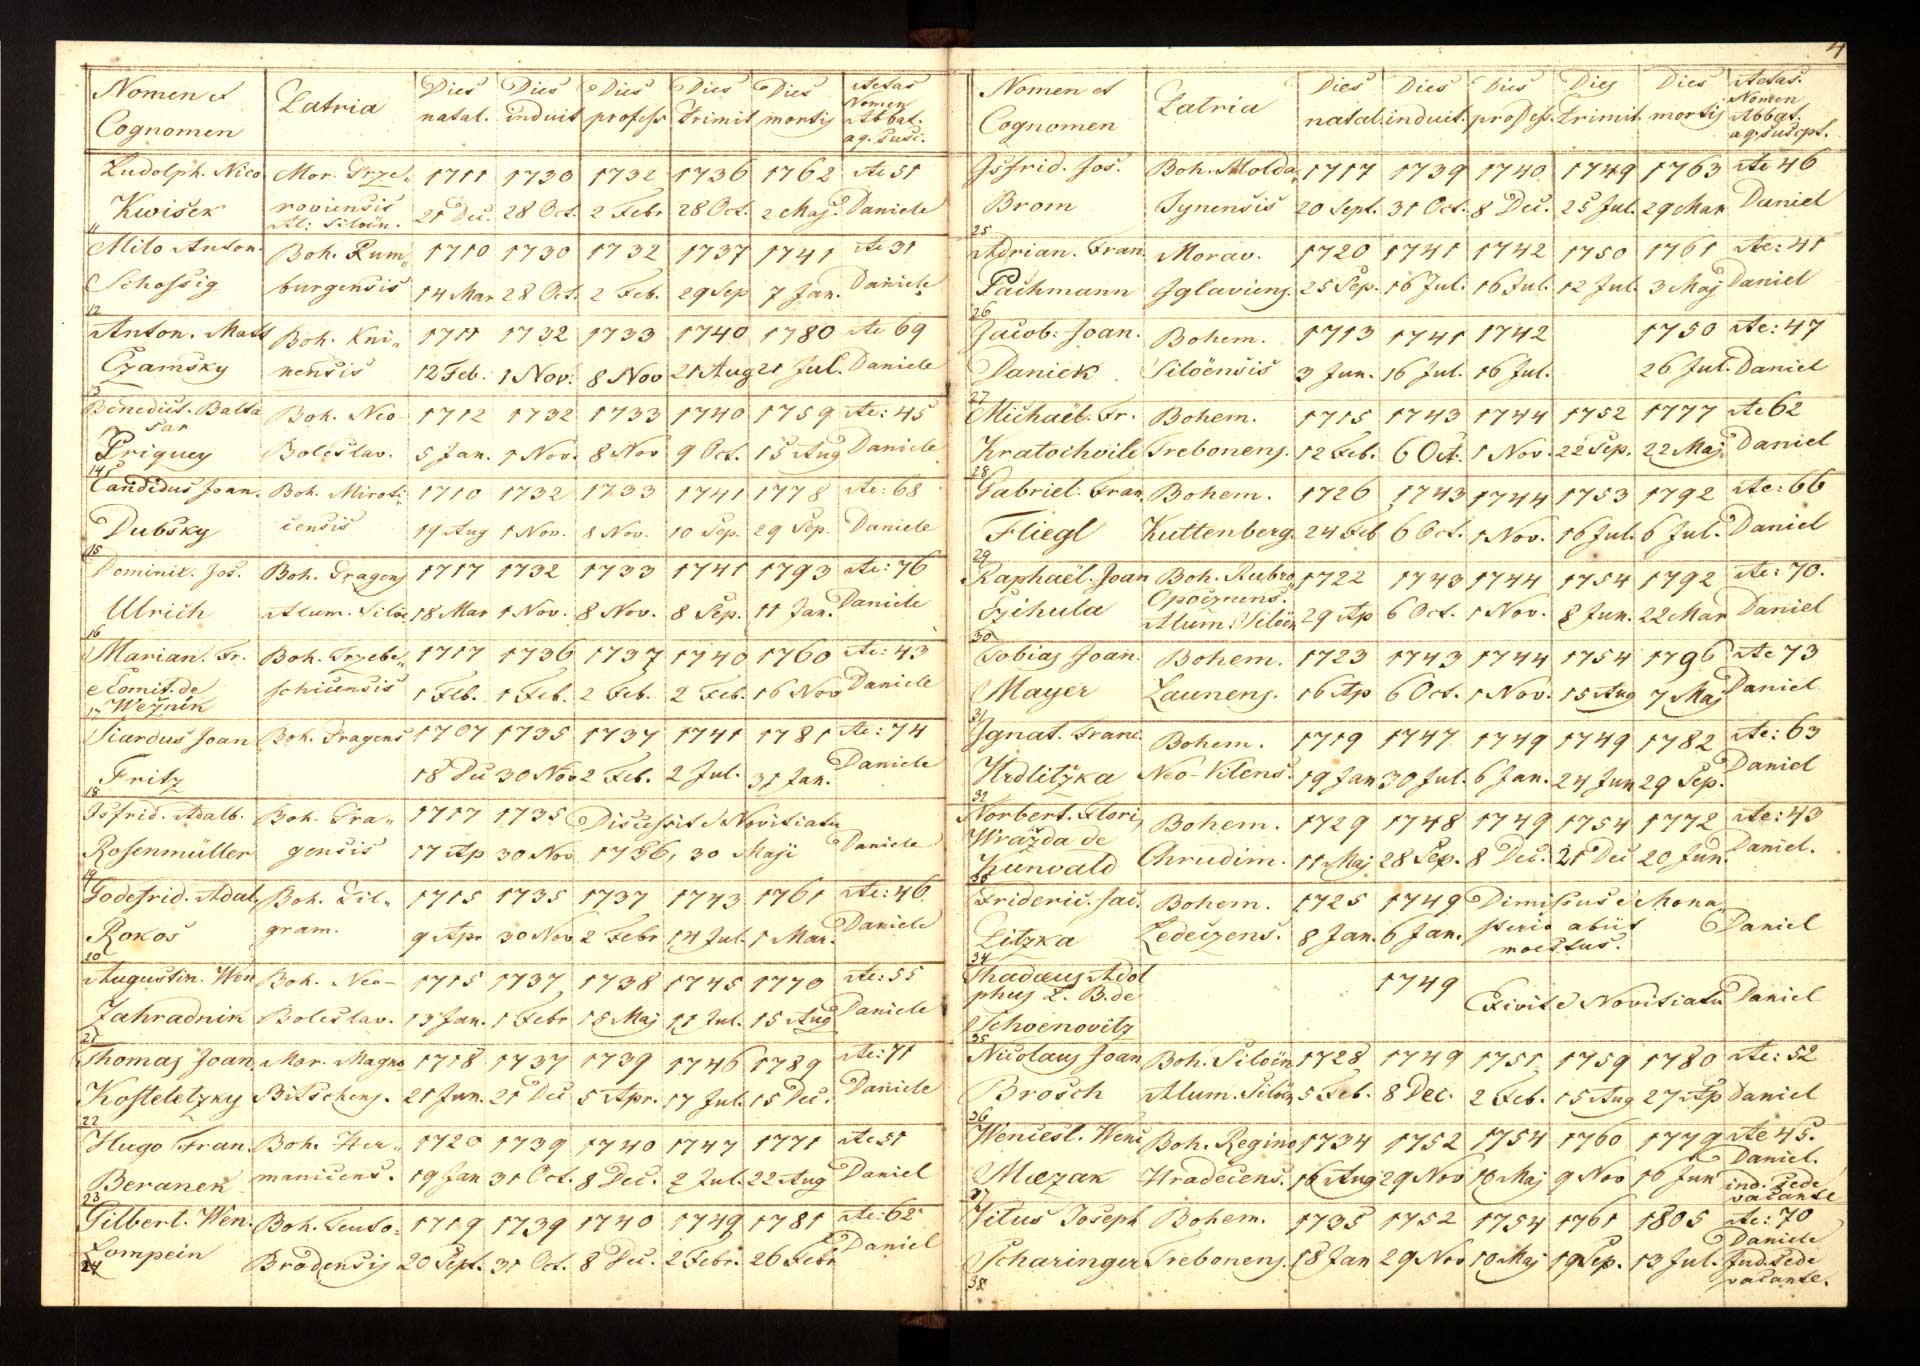 4
Nomen et Patria Dies Dies Dies Dies Dies Aetas
Cognomen natal. induit profess Primit mortis Nomen Abbat. aq. susc.
Ludolph. Nico Mor. Prze„ 1711 1730 1732 1736 1762 Ae 51
Kwisek roviensis 21 Dec. 28 Oct. 2 Febr 28 Oct. 2 Maj. Daniele
11 Al: Siloën.
Milo Anton. Boh. Rum„ 1710 1730 1732 1737 1741 Ae 31
Schossig burgensis 14 Mar 28 Oct. 2 Feb. 29 Sep 7 Jan. Daniele
12
Anton. Matt Boh. Kni„ 1711 1732 1733 1740 1780 Ae 69
Czamsky nensis 12 Feb. 1 Nov. 8 Nov 21 Aug 21 Jul. Daniele
13
Benedict. Balta Boh. Neo 1712 1732 1733 1740 1759 Ae: 45
sar
Priquey Boleslav. 5 Jan. 1 Nov. 8 Nov 9 Oct. 15 Aug Daniele
14
Candidus Joan. Boh. Miroti: 1710 1732 1733 1741 1778 Ae: 68
Dubsky censis 19 Aug 1 Nov. 8 Nov. 10 Sep. 29 Sep. Daniele
15
Dominic. Jos. Boh. Pragens 1717 1732 1733 1741 1793 Ae: 76
Ulrich Alum. Siloe 18 Mar 1 Nov. 8 Nov. 8 Sep. 11 Jan. Daniele
16
Marian. Fr. Boh. Trzebe„ 1717 1736 1737 1740 1760 Ae: 43
e Comit. de schicensis 1 Feb. 1 Feb. 2 Feb. 2 Feb. 16 Nov Daniele
17 Weznik
Siardus Joan Boh. Pragens 1707 1735 1737 1741 1781 Ae: 74
Fritz 18 Dec 30 Nov 2 Feb. 2 Jul. 31 Jan. Daniele
18
Isfrid. Adalb. Boh. Pra„ 1717 1735 Discessit e Novitiatu
Rosenmüller gensis 17 Ap 30 Nov 1736, 30 Maji Daniele
19
Godefrid. Adal. Boh. Pil„ 1715 1735 1737 1743 1761 Ae: 46
Rokos gram. 9 Apr 30 Nov 2 Febr 14 Jul. 1 Mar. Daniele
20
Augustin. Wen Boh. Neo- 1715 1737 1738 1745 1770 Ae: 55
Zahradnik Boleslav. 13 Jan. 1 Febr 15 Maj 11 Jul. 15 Aug Daniele
21
Thomas Joan Mor. Magno 1718 1737 1739 1746 1789 Ae: 71
Kosteletzny Bitschens. 21 Jun. 21 Dec 5 Apr. 17 Jul. 15 Dec. Daniele
22
Hugo Fran. Boh. Her„ 1720 1739 1740 1747 1771 Ae 51
Beranek manicens. 19 Jan 31 Oct. 8 Dec. 2 Jul. 22 Aug Daniel
23
Gilbert. Wen. Boh. Teuto- 1719 1739 1740 1749 1781 Ae: 62
Lompein Brodensis 20 Sept. 31 Oct. 8 Dec. 2 Febr. 26 Febr Daniel
24
Nomen et Patria Dies Dies Dies Dies Dies Aetas.
Cognomen natal. induit. profess. Primit. mortis Nomen Abbat. aq. suscpt.
Isfrid. Jos. Boh. Molda„ 1717 1739 1740 1749 1763 Ae 46
Brom Tynensis 20 Sept. 31 Oct. 8 Dec. 25 Jul. 29 Mar Daniel
25
Adrian. Fran. Morav. 1720 1741 1742 1750 1761 Ae: 41
Pachmann Iglaviens. 25 Sep. 16 Jul. 16 Jul. 12 Jul. 3 Maj Daniel
26
Jacob. Joan. Bohem. 1713 1741 1742 1750 Ae: 47
Daniek Siloënsis 3 Jun. 16 Jul. 16 Jul. 26 Jul. Daniel
27
Michaël. Fr. Bohem. 1715 1743 1744 1752 1777 Ae 62
Kratochvile Trebonens. 12 Feb. 6 Oct. 1 Nov. 22 Sep. 22 Maj. Daniel
28
Gabriel. Fran. Bohem. 1726 1743 1744 1753 1792 Ae: 66
Fliegl Kuttenberg. 24 Feb 6 Oct. 1 Nov. 16 Jul. 6 Jul. Daniel
29
Raphaël. Joan Boh. Rubro 1722 1743 1744 1754 1792 Ae: 70.
Opocznens.
Czihula Alum. Siloën 29 Ap 6 Oct. 1 Nov. 8 Jun. 22 Mar Daniel
30
Tobias Joan. Bohem. 1723 1743 1744 1754 1796 Ae 73
Mayer Launens. 16 Ap 6 Oct. 1 Nov. 15 Aug 7 Maj Daniel
31
Ignat. Franc. Bohem. 1719 1747 1749 1749 1782 Ae: 63
Hrdlitzka Neo-Vilens. 19 Jan 30 Jul. 6 Jan. 24 Jun 29 Sep. Daniel
32
Norbert. Flori, Bohem. 1729 1748 1749 1754 1772 Ae: 43
Wražda de
Kunvald Chrudim. 11 Maj 28 Sep. 8 Dec. 21 Dec 20 Jun. Daniel.
33
Frideric. Jac. Bohem. 1725 1749 Dimissus e Mona
Litzka Ledeczens. 8 Jan. 6 Jan. sterio abiit Daniel
34 moestus.
Thadæus Adol 1749
phus L. B. de Exivit e Novitiatu Daniel
Schoenovitz
35
Nicolaus Joan Boh. Siloën 1728 1749 1751 1759 1780 Ae: 52
Brosch Alum. Siloën 5 Feb. 8 Dec. 2 Feb. 15 Aug 27 Ap Daniel
36
Wencesl. Wenc Boh. Regino 1734 1752 1754 1760 1779 Ae 45.
Mœzak Hradecens. 16 Aug 29 Nov 10 Maj 9 Nov 16 Jun Daniel.
37 ind. sede
vacante
Vitus Joseph Bohem. 1735 1752 1754 1761 1805 Ae: 70
Scharinger Trebonens. 18 Jan 29 Nov 10 Maj 19 Sep. 13 Jul. Daniele
38. Jnd. sede
vacante.